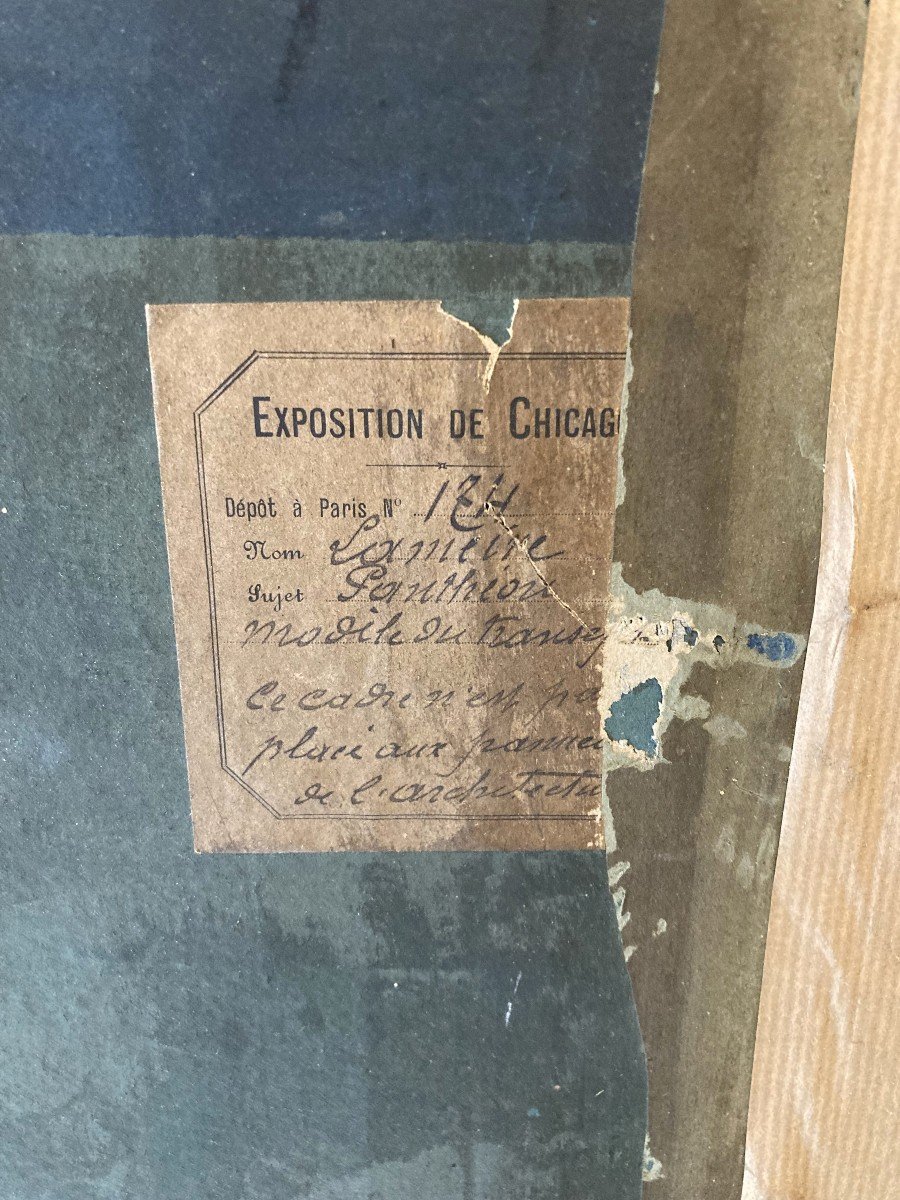 EXPOSITION DE CHICAG
Dépôt à Paris N° 174
Nom Lameire
Sujet Panthéon
modèle du transep
Ce cadre n'est pa
placé aux pannea
de l'architectu